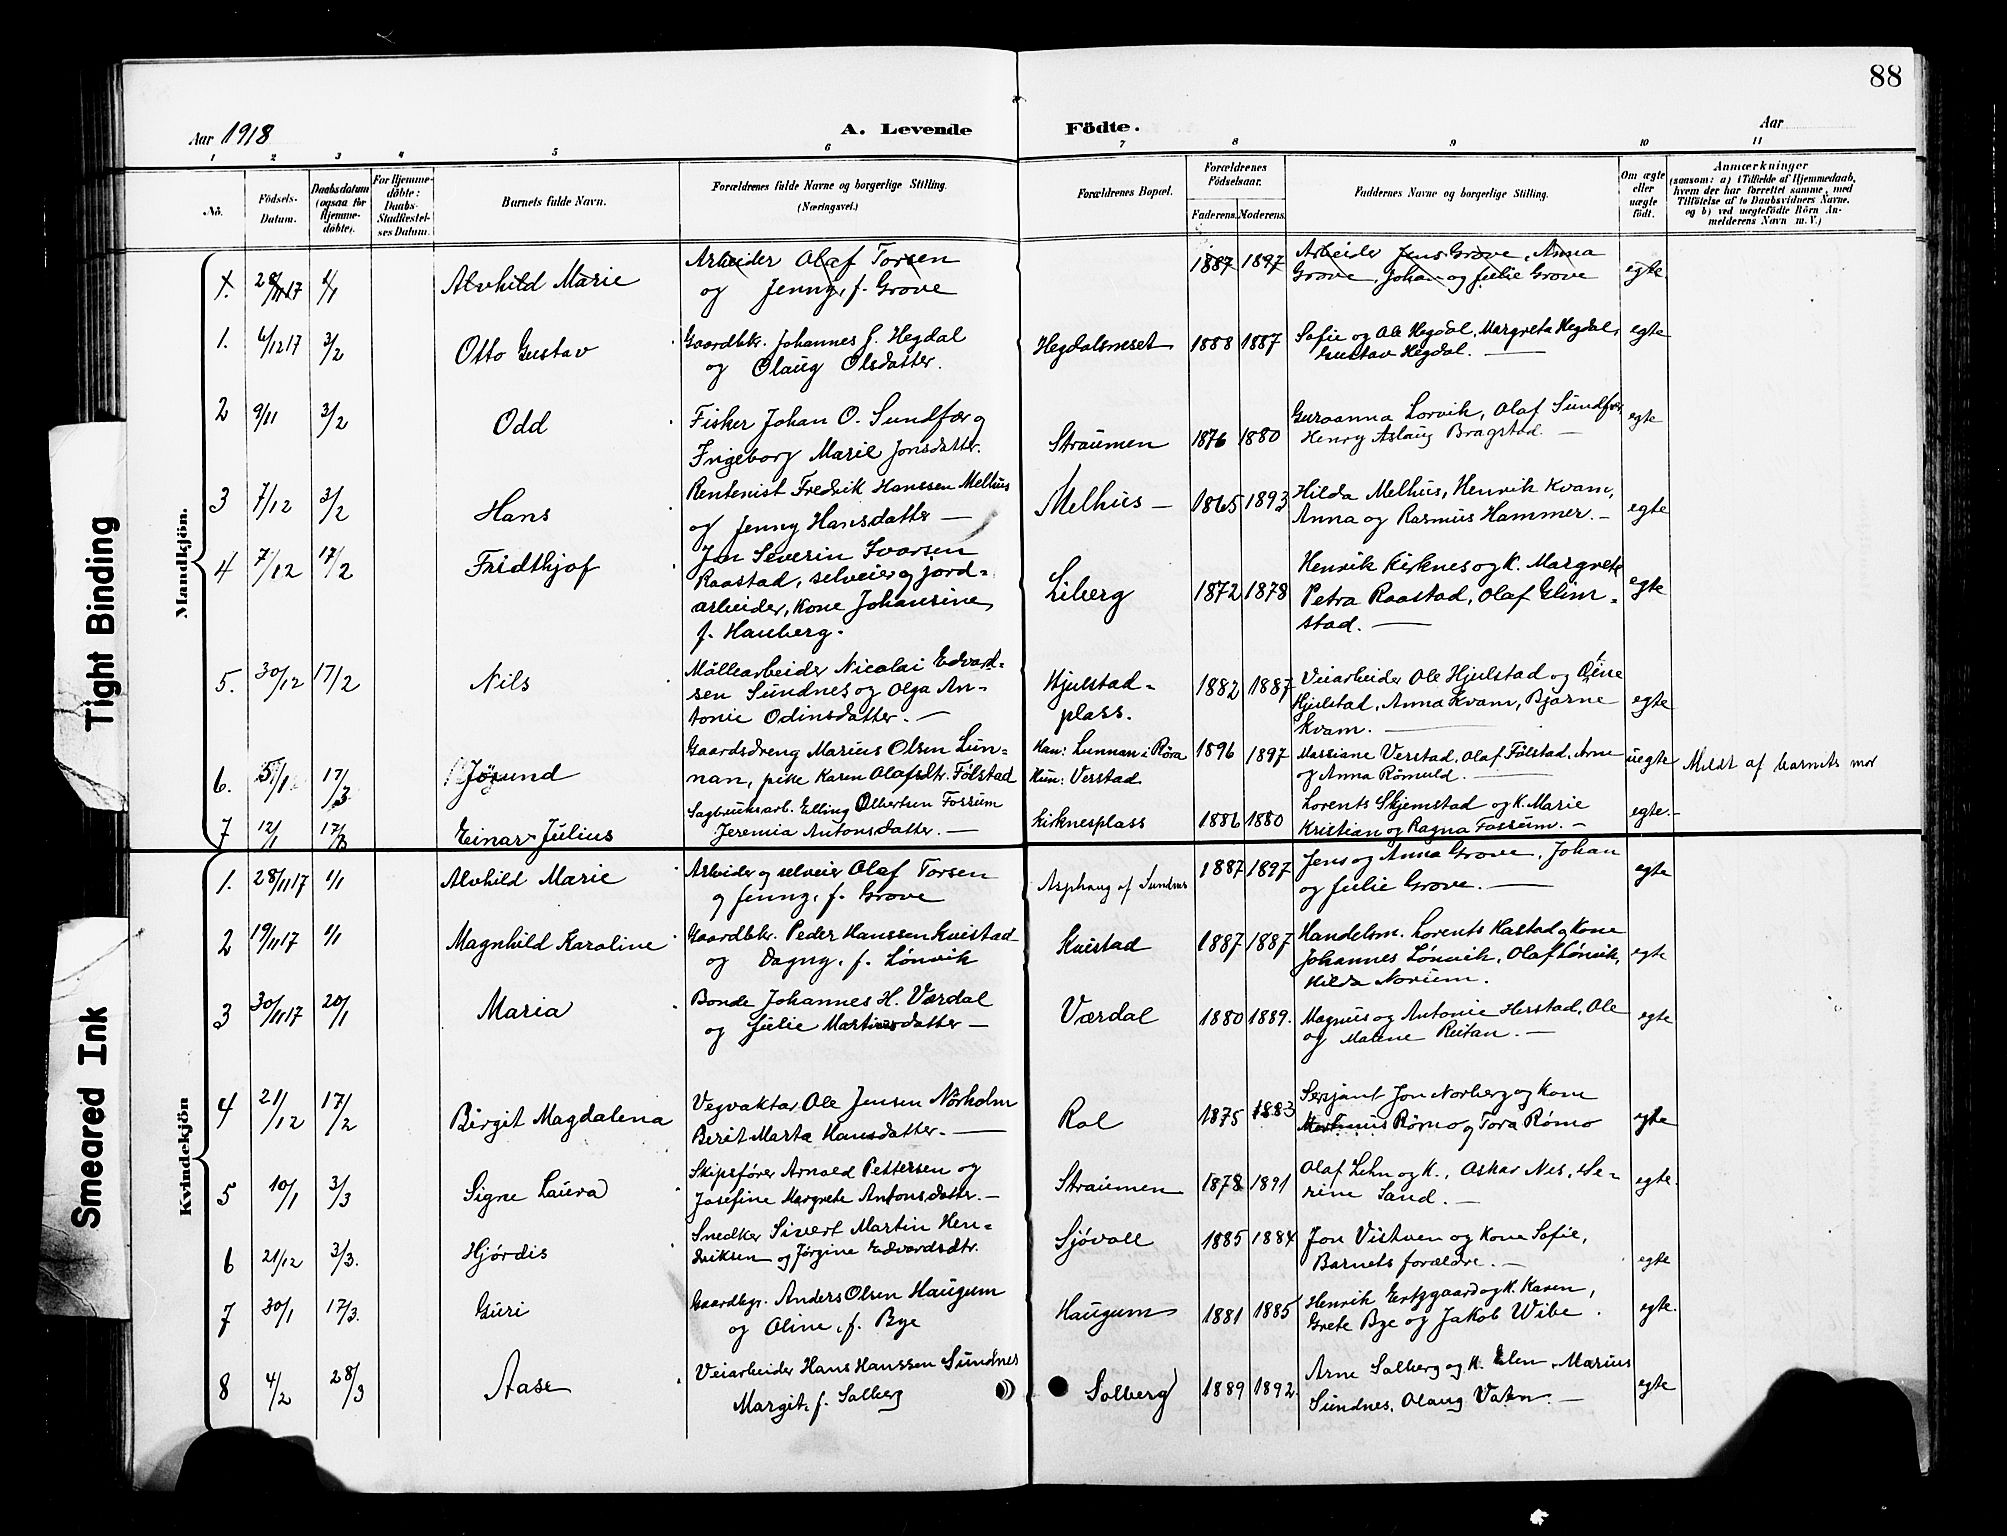 88
Aar 1918
A. Levende
Födte.
Aar
1 2 3 4 5 6 7 8 9 10 11
No.
Födsels-Datum.
Daabsdatum (ogsaa for Hjemme-döbte).
For Hjemme-döbte: Daabs-Stadfæstel-ses Datum.
Barnets fulde Navn.
Forældrenes fulde Navne og borgerlige Stilling. (Næringsvei.)
Forældrenes Bopæl.
Forældrenes Födselsaar.
Faderens. Moderens.
Faddernes Navne og borgerlige Stilling.
Om ægte eller uægte födt.
Anmærkninger
(saasom: a) i Tilfælde af Hjemmedaab,
hvem der har forrettet samme, med
Tilföielse af to Daabsvidners Navne,
og b) ved uægtefödte Börn An-
melderens Navn m. V.)
Mandkjön.
1. 28/11 17 1/1 Alvhild Marie Arbeider Olaf Torsen 1887 1897 Arbeider Jens Grove, Anna
og Jenny, f. Grove Grove, Johan og Julie Grove egte
1. 6/12 17 3/2 Otto Gustav Gaardbkr. Johannes J. Hegdal Hegdalsneset 1888 1887 Sofie og Ole Hegdal, Margreta Hegdal, egte
og Olaug Olsdatter. Gustav Hegdal. —
2 9/11 3/2 Odd Fisker Johan O. Sundfær og Straumen 1876 1880 Guroanna Lorvik, Olaf Sundfær egte
Ingeborg Marie Jonsdatter. Henry Aslaug Bragstad. —
3 7/12 3/2 Hans Rentenist Fredrik Hanssen Melhus Melhus — 1865 1893 Hilda Melhus, Henrik Kvam,
og Jenny Hansdatter — Anna og Rasmus Hammer. — egte
4 7/12 17/2 Fridthjof Jon Severin Ivarsen Liberg 1872 1878 Henrik Kirknes og K. Margrete egte
Raastad, selveier og jord-
arbeider, Kone Johansine, Petra Raastad, Olaf Glim-
f. Hauberg. stad. —
5. 30/12 17/2 Nils Möllearbeider Nicolai Edvard- Hjulstad- 1882 1887 Veiarbeider Ole Hjulstad og Oline
sen Sundnes og Olga An- plass. Hjulstad, Anna Kvam, Bjarne egte
tonie Odinsdatter. — Kvam. —
6. 5/1 17/3 Jørund Gaardsdreng Marius Olsen Lun- Han: Lunnan i Røra 1896 1897 Massiane Verstad, Olaf Følstad, Arne uegte Meldt af barnets mor
nan, pike Karen Olafsdtr. Følstad Hun: Verstad og Anna Rømuld. —
7 12/1 17/3 Einar Julius Sagbruksarb. Elling Olbertsen Fossum Kirknesplass 1886 1880 Lorents Skjemstad og K. Marie egte. —
Jeremia Antonsdatter. — Kristian og Ragna Fossum. —
Kvindekjön
1. 28/11 17 1/1 Alvhild Marie Arbeider og selveier Olaf Torsen Asphaug af Sundnes 1887 1897 Jens og Anna Grove, Johan egte
og Jenny, f. Grove og Julie Grove. —
2 19/11 17 1/1 Magnhild Karoline Gaardbkr. Peder Hanssen Kvistad Kvistad 1887 1887 Handelsm. Lorents Hastad og Kone
og Dagny, f. Lønvik Johannes Lønvik, Olaf Lønvik, egte
Hilda Norum.
3 30/11 17 20/1 Maria Bonde Johannes H. Værdal Værdal 1880 1889. Magnus og Antonie Herstad, Ole egte
og Julie Martinsdatter — og Malene Reitan. —
4 21/12 17/2 Birgit Magdalena Vegvaktar Ole Jensen Nörholm Rol 1875 1883 Sersjant Jon Norberg og Kone
Berit Marta Hansdatter. — Rømo og Tora Rømo egte
5 10/1 3/3 Signe Laura Skipsfører Arnold Pettersen og Straumen 1878 1891 Olaf Lehn og K., Oskar Nes, Se- egte.
Josefine Margrete Antonsdatter. — rine Sand. —
6 21/12 3/3. Hjórdis Snedker Sivert Martin Hen- Sjóvoll 1885 1884 Jon Vistven og Kone Sofie,
driksen og Jørgine Edvardsdtr. Barnets forældre. — egte
7 30/1 17/3. Guri Gaardbgr. Anders Olsen Haugum Haugum 1881 1885 Henrik Ertzgaard og K. Karen, egte.
og Oline, f. Bye Grete Bye og Jakob Wibe.
8 4/2 28/3 Aase Veiarbeider Hans Hanssen Sundnes Solberg 1889 1892. Arne Solberg og K. Elen, Marius egte
Margit, f. Solberg Sundnes, Olaug Vatn. —
Tight Binding
Smeared Ink